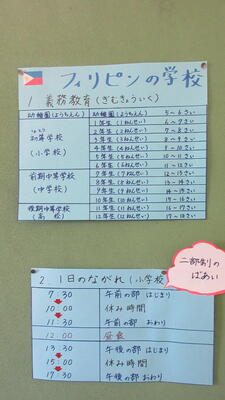 フィリピンの学校
1 義務教育(ぎむきょういく)
幼稚園(ようちえん) 5〜6さい
1年生(1ねんせい) 6〜7さい
初等学校 2年生(2ねんせい) 7〜8さい
3年生(3ねんせい) 8〜9さい
(小学校) 4年生(4ねんせい) 9〜10さい
5年生(5ねんせい) 10〜11さい
6年生(6ねんせい) 11〜12さい
前期中等学校 7年生(7ねんせい) 12〜13さい
8年生(8ねんせい) 13〜14さい
(中学校) 9年生(9ねんせい) 14〜15さい
10年生(10ねんせい) 15〜16さい
後期中等学校 11年生(11ねんせい) 16〜17さい
(高校) 12年生(12ねんせい) 17〜18さい
二部制の
ばあい
2 1日のながれ(小学校)
7:30 午前の部 はじまり
10:00 休み時間
11:30 午前の部 おわり
12:00 昼食
13:30 午後の部 はじまり
15:00 休み時間
17:30 午後の部 おわり